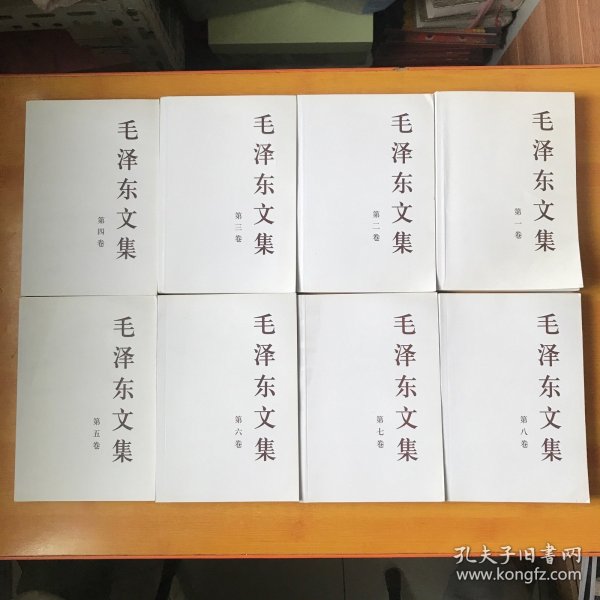 毛泽东文集
第四卷
毛泽东文集
第三卷
毛泽东文集
第二卷
毛泽东文集
第一卷
毛泽东文集
第五卷
毛泽东文集
第六卷
毛泽东文集
第七卷
毛泽东文集
第八卷
孔夫子旧書网
www.kongfz.com